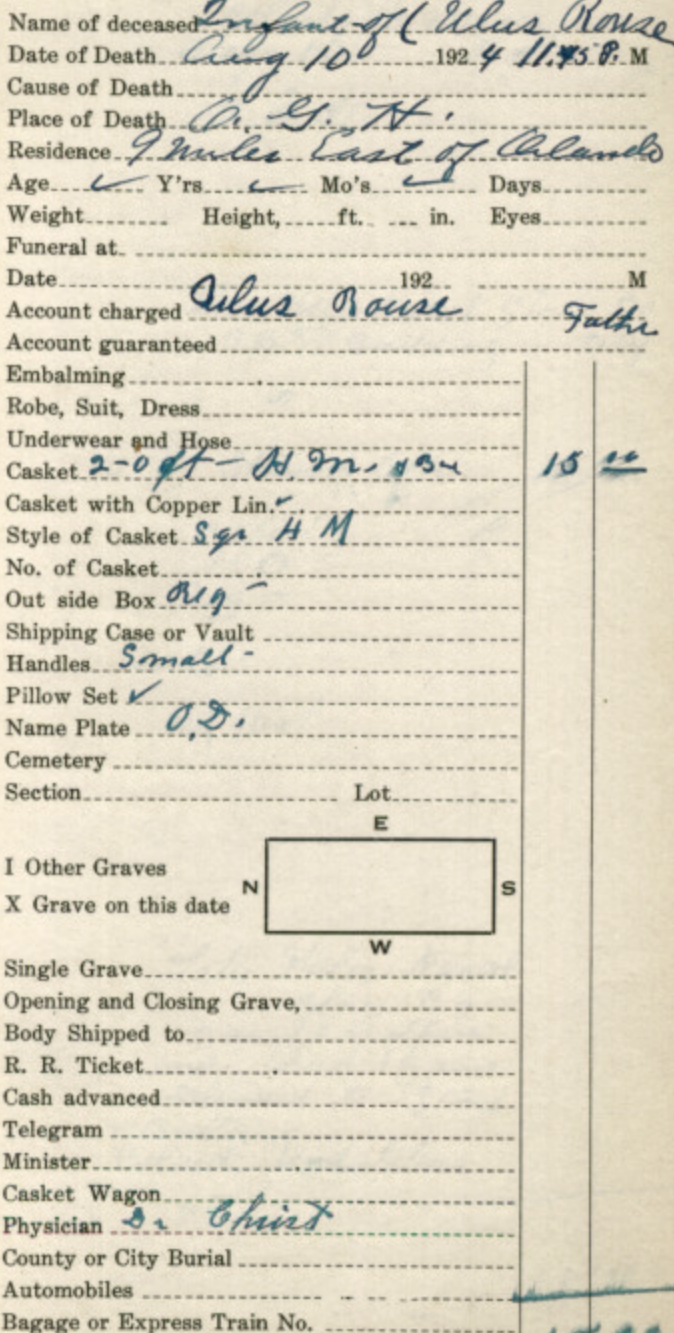 Name of deceased Infant of (Ulus Rouse
Date of Death Aug 10 192 4 11.45 P. M
Cause of Death
Place of Death O. G. H.
Residence 9 miles East of Orlando
Age ✓ Y'rs ✓ Mo's ✓ Days
Weight Height, ft. in. Eyes
Funeral at
Date 192 M
Account charged Ulus Rouse Father
Account guaranteed
Embalming
Robe, Suit, Dress
Underwear and Hose
Casket 2-0 ft - H. M. 15 00
Casket with Copper Lin.
Style of Casket Sqr H M
No. of Casket
Out side Box Reg -
Shipping Case or Vault
Handles Small -
Pillow Set ✓
Name Plate O.D.
Cemetery
Section Lot
E
I Other Graves
N S
X Grave on this date
W
Single Grave
Opening and Closing Grave,
Body Shipped to
R. R. Ticket
Cash advanced
Telegram
Minister
Casket Wagon
Physician Dr Christ
County or City Burial
Automobiles
Bagage or Express Train No.